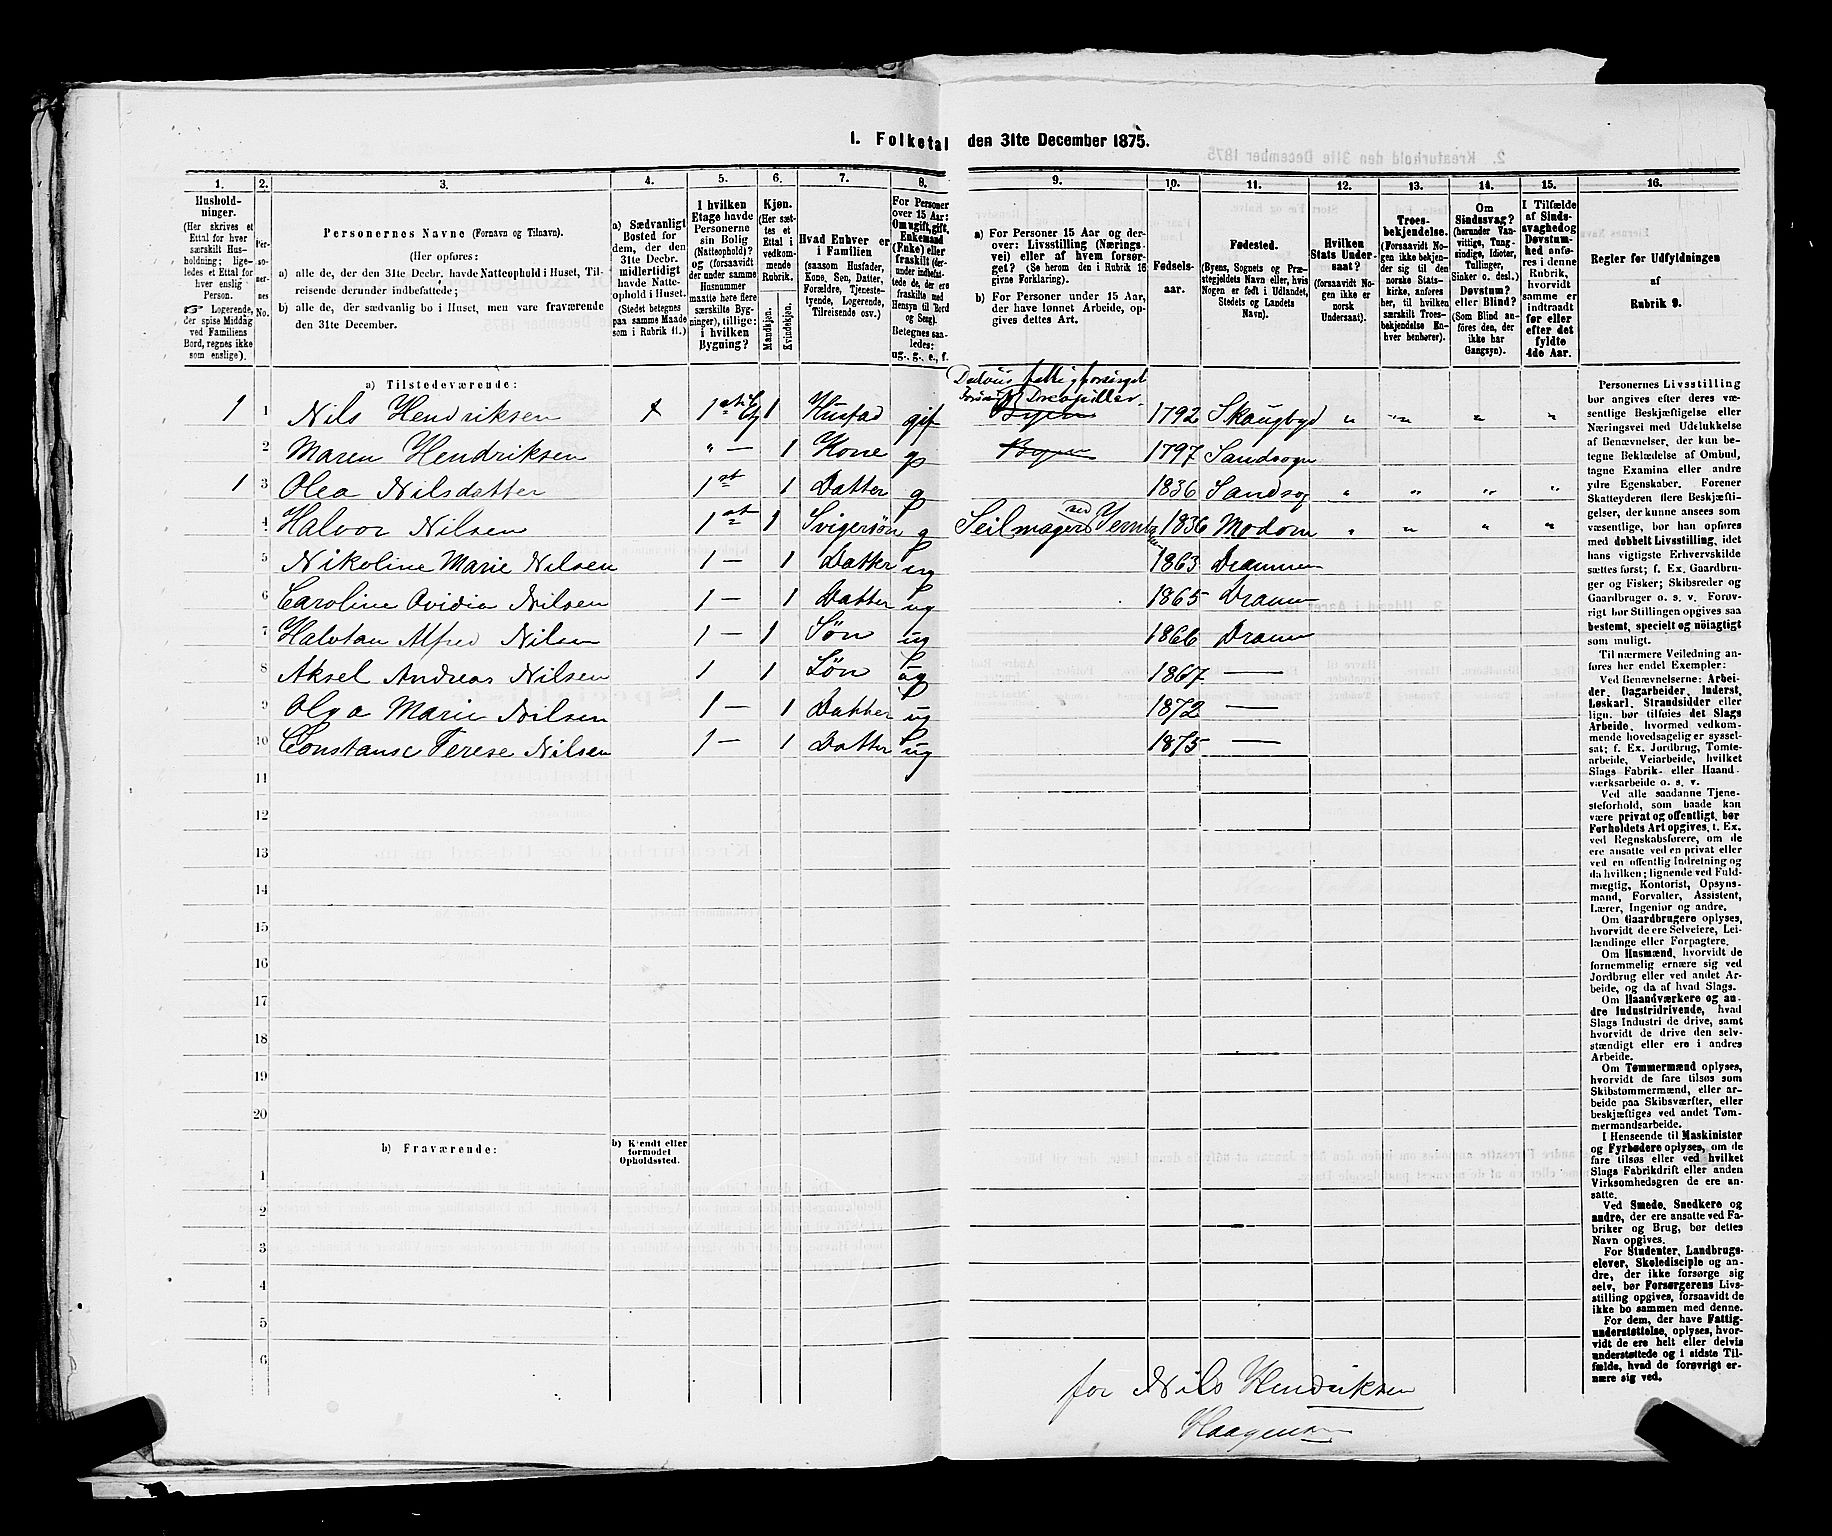 1. Folketal den 31te December 1875.
1. 2. 3. 4. 5. 6. 7. 8. 9. 10. 11. 12. 13. 14. 15. 16.
Husholdninger.
(Her skrives et
Ettal for hver
særskilt Hus-
holdning; lige-
ledes et Ettal for
hver enslig
Person.
Logerende,
der spise Middag
ved Familiens
Bord, regnes ikke
som enslige).
Personernes No.
Personernes Navne (Fornavn og Tilnavn).
(Her opføres:
a) alle de, der den 31te Decbr. havde Natteophold i Huset, Til-
reisende derunder indbefattede;
b) alle de, der sædvanlig bo i Huset, men vare fraværende
den 31te December.
a) Sædvanligt
Bosted for
dem, der den
31te Decbr.
midlertidigt
havde Natte-
ophold i Huset.
(Stedet betegnes
paa samme Maade
som i Rubrik 11.)
I hvilken
Etage havde
Personerne
sin Bolig
(Natteophold)?
og (forsaavidt
der under samme
Husnummer
maatte høre flere
særskilte Byg-
ninger), tillige:
i hvilken
Bygning?
Kjøn.
(Her sæt-
tes et
Ettal i
vedkom-
mende
Rubrik.
Mandkjøn.
Kvindekjøn.
Hvad Enhver er
i Familien
(saasom Husfader,
Kone, Søn, Datter,
Forældre, Tjeneste-
tyende, Logerende,
Tilreisende osv.)
For Personer
over 15 Aar:
Om ugift, gift,
Enkemand
(Enke) eller
fraskilt (der-
under indbefat-
tede de, der ere
fraskilte med
Hensyn til Bord
og Seng).
Betegnes saa-
ledes:
ug., g., e., f.
a) For Personer 15 Aar og der-
over: Livsstilling (Nærings-
vei) eller af hvem forsør-
get? (Se herom den i Rubrik 16
givne Forklaring).
b) For Personer under 15 Aar,
der have lønnet Arbeide, op-
gives dettes Art.
Fødsels-
aar.
Fødested.
(Byens, Sognets og Præ-
stegjeldets Navn eller, hvis
Nogen er født i Udlandet,
Stedets og Landets
Navn).
Hvilken
Stats Under-
saat?
(forsaavidt No-
gen ikke er
norsk
Undersaat).
Troes-
bekjendelse.
(Forsaavidt No-
gen ikke bekjen-
der sig til den
norske Stats-
kirke, anføres
her, til hvilken
særskilt Troes-
bekjendelse En-
hver henhører).
Om
Sindssvag?
(herunder Van-
vittige, Tung-
sindige, Idioter,
Tullinger,
Sinker o. desl.)
Døvstum?
eller Blind?
(Som Blind an-
føres den, der
ikke har
Gangsyn).
I Tilfælde
af Sinds-
svaghed og
Døvstum-
hed anfø-
res i denne
Rubrik,
hvorvidt
samme er
indtraadt
før eller
efter det
fyldte
4de Aar.
Regler for Udfyldningen
af
Rubrik 9.
a) Tilstedeværende:
1 1 Nils Hendriksen 1 Husfad gift 1792 Skaugbygd
2 Maren Hendriksen " — 1 Kone g 1797 Sandsogn
1 3 Olea Nilsdatter 1 st 1 Datter g 1836 Sandsog
4 Halvor Nilsen 1 st 1 Svigersøn g Seilmager ved 1836 Modom
5 Nikoline Marie Nilsen 1 — 1 Datter ug 1863 Drammen
6 Caroline Ovidia Nilsen 1 — 1 Datter ug 1865 Dramm
7 Halvtan Alfred Nilsen 1 — 1 Søn ug 1866 Dramm
8 Aksel Andreas Nilsen 1 1 Søn ug 1867 —
9 Olga Marie Nilsen 1 — 1 Datter ug 1872 —
10 Constanse Terese Nilsen 1 — 1 Datter ug 1875 —
11
12
13
14
15
16
17
18
19
20
b) Fraværende:
b) Kjendt eller
formodet
Opholdssted.
1
2
3
4
5
6
for Nils Hendriksen
Haagensen
Personernes Livsstilling
bør angives efter deres væ-
sentlige Beskjæftigelse eller
Næringsvei med Udelukkelse
af Benævnelser, der kun be-
tegne Beklædelse af Ombud,
tagne Examina eller andre
ydre Egenskaber. Forener
Skatteyderen flere Beskjæfti-
gelser, der kunne ansees som
væsentlige, bør han opføres
med dobbelt Livsstilling, idet
hans vigtigste Erhvervskilde
sættes først; f. Ex. Gaardbru-
ger og Fisker; Skibsreder og
Gaardbruger o. s. v. Forøv-
rigt bør Stillingen opgives saa
bestemt, specielt og nøiagtigt
som muligt.
Til nærmere Veiledning an-
føres her endel Exempler:
Ved Benævnelserne: Arbei-
der, Dagarbeider, Inderst,
Løskarl, Strandsidder eller
lign. bør tilføies det Slags
Arbeide, hvormed vedkom-
mende hovedsagelig er syssel-
sat; f. Ex. Jordbrug, Tomte-
arbeide, Veiarbeide, hvilket
Slags Fabrik- eller Haand-
værksarbeide o. s. v.
Ved alle saadanne Tjene-
steforhold, som baade kan
være privat og offentligt, bør
Forholdets Art opgives, t. Ex.
ved Regnskabsførere, om de
ere ansatte ved en privat eller
ved en offentlig Indretning og
da hvilken; lignende ved Fuld-
mægtig, Kontorist, Opsyns-
mand, Forvalter, Assistent,
Lærer, Ingeniør og andre.
Om Gaardbrugere oplyses,
hvorvidt de ere Selveiere, Lei-
lændinge eller Forpagtere.
Om Husmænd, hvorvidt de
fornemmelig ernære sig ved
Jordbrug eller ved andet Ar-
beide, og da af hvad Slags.
Om Haandværkere og an-
dre Industridrivende, hvad
Slags Industri de drive, samt
hvorvidt de drive den selv-
stændigt eller ere i andres
Arbeide.
Om Tømmermænd oplyses,
hvorvidt de fare tilsøs som
Skibstømmermænd, eller ar-
beide paa Skibsværfter, eller
beskjæftiges ved andet Tøm-
mermandsarbeide.
I Henseende til Maskinister
og Fyrbødere oplyses, om de
fare tilsøs eller ved hvilket
Slags Fabrikdrift eller anden
Virksomhedsgren de ere an-
satte.
Ved Smede, Snedkere og
andre, der ere ansatte ved Fa-
briker og Brug, bør dettes
Navn opgives.
For Studenter, Landbrugs-
elever, Skoledisciple og an-
dre, der ikke forsørge sig
selv, bør Forsørgerens Livs-
stilling opgives, forsaavidt de
ikke bo sammen med denne.
For dem, der have Fattig-
understøttelse, oplyses, hvor-
vidt de ere helt eller delvis
understøttede og i sidste Til-
fælde, hvad de forøvrigt er-
nære sig ved.